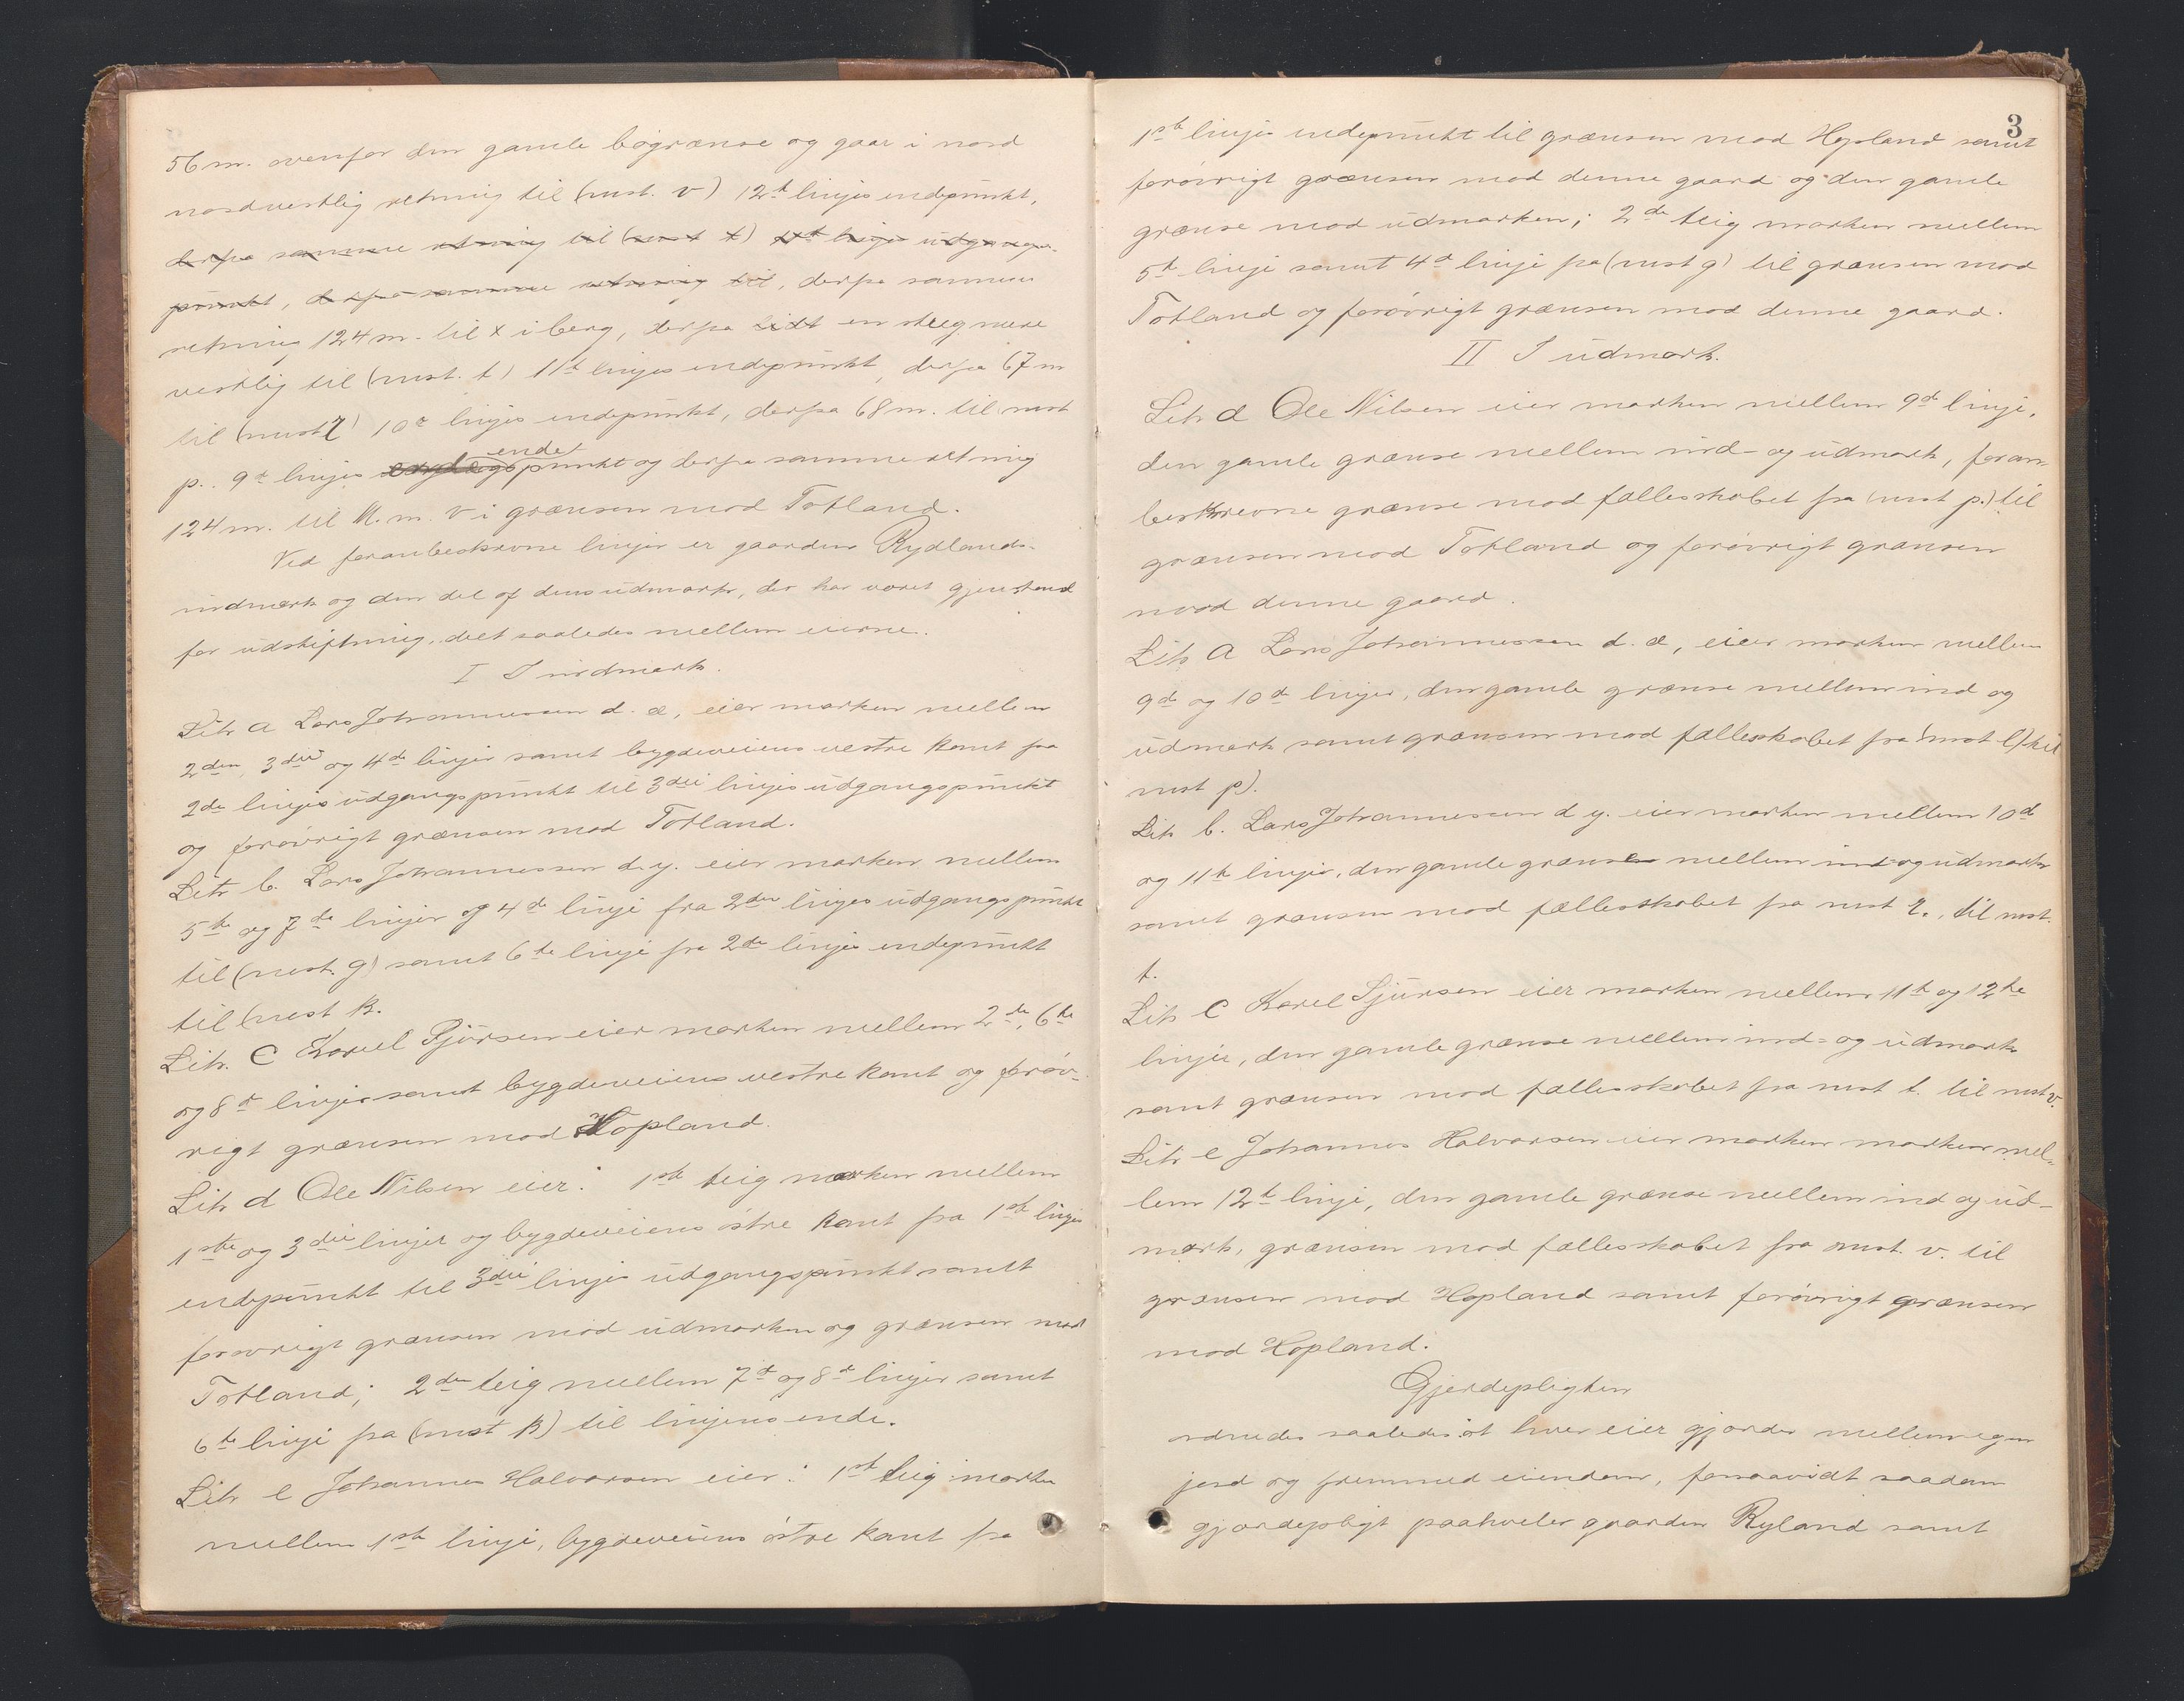 56 m. ovenfor den gamle bøgrænse og gaar i nord
nordvestlig retning til (mrst. v) 12te linjes endepunkt,
derfra samme retning til (mrst t) 11te linjes udgangs-
punkt, derfra samme retning til, derfra samme
retning 124 m. til x i berg, derfra lidt en streg mere
vestlig til (mrst. t) 11te linjes endepunkt, derfra 67 m
til (mrst r) 10de linjes endepunkt, derfra 68 m. til mrst
p. 9de linjes endepunkt og derfra samme retning
124 m. til M. m. V i grænsen mod Totland.
Ved foranbeskrevne linjer er gaarden Rydlands
indmark og den del af dens udmark, der har været gjenstand
for udskiftning, delt saaledes mellem eierne.
I I indmark.
Litr a Lars Johannessen d. æ, eier marken mellem
2den, 3die og 4de linjer samt bygdeveiens vestre kant fra
2de linjes udgangspunkt til 3die linjes udgangspunkt
og forøvrigt grænsen mod Totland.
Litr b. Lars Johannessen d. y. eier marken mellem
5te og 7de linjer og 4de linje fra 2den linjes udgangspunkt
til (mrst. g) samt 6te linje fra 2de linjes endepunkt
til (mrst k.
Litr. c Karel Sjursen eier marken mellem 2de, 6te
og 8de linjer samt bygdeveiens vestre kant og forøv-
rigt grænsen mod Hopland.
Litr d Ole Nilsen eier: 1ste teig marken mellem
1ste og 3die linjer og bygdeveiens østre kant fra 1ste linjes
endepunkt til 3die linjes udgangspunkt samt
forøvrigt grænsen mod udmarken og grænsen mod
Totland; 2den teig mellem 7de og 8de linjer samt
6te linje fra (mrst k) til linjens ende.
Litr e Johannes Halvorsen eier: 1ste teig marken
mellem 1ste linje, bygdeveiens østre kant fra
3
1ste linjes endepunkt til grænsen mod Hopland samt
forøvrigt grænsen mod denne gaard og den gamle
grænse mod udmarken; 2de teig marken mellem
5te linje samt 4de linje fra (mrst g) til grænsen mod
Totland og forøvrigt grænsen mod denne gaard.
II I udmark.
Litr d Ole Nilsen eier marken mellem 9de linje,
den gamle grænse mellem ind- og udmark, foran-
beskrevne grænse mod fællesskabet fra (mrst p.) til
grænsen mod Totland og forøvrigt grænsen
mod denne gaard.
Litr a Lars Johannessen d. æ, eier marken mellem
9de og 10de linjer, den gamle grænse mellem ind og
udmark samt grænsen mod fællesskabet fra (mrst r) til
mrst p).
Litr b. Lars Johannessen d y. eier marken mellem 10de
og 11te linjer, den gamle grænse mellem ind og udmark
samt grænsen mod fællesskabet fra mrst r., til mrst.
t.
Litr c Karel Sjursen eier marken mellem 11te og 12te
linjer, den gamle grænse mellem ind- og udmark
samt grænsen mod fællesskabet fra mrst t. til mrst v.
Litr e Johannes Halvorsen eier marken marken mel-
lem 12te linje, den gamle grænse mellem ind og ud-
mark, grænsen mod fællesskabet fra mrst. v. til
grænsen mod Hopland samt forøvrigt grænsen
mod Hopland.
Gjerdepligten
ordnedes saaledes at hver eier gjærder mellem egen
jord og fremmed eiendom, forsaavidt saadan
gjærdepligt paahviler gaarden Ryland samt